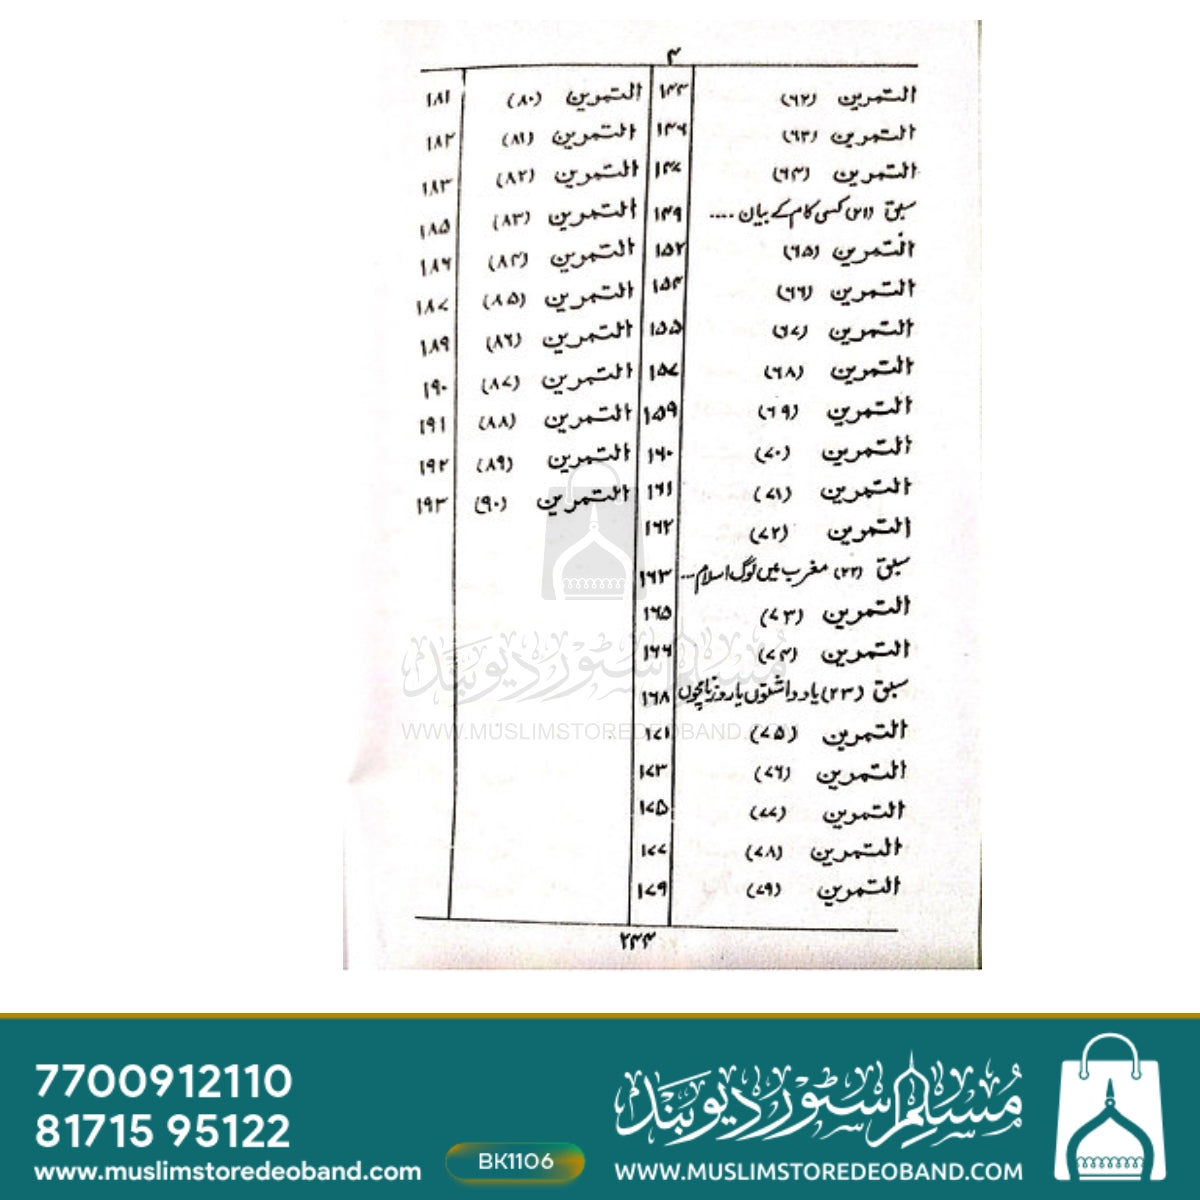 ۴
التمرین (۶۲) ۱۴۴
التمرین (۶۳) ۱۴۶
التمرین (۶۴) ۱۴۷
سبق (۲۱) اس کسی کام کے بیان .... ۱۴۹
التمرین (۶۵) ۱۵۲
التمرین (۶۶) ۱۵۴
التمرین (۶۷) ۱۵۵
التمرین (۶۸) ۱۵۷
التمرین (۶۹) ۱۵۹
التمرین (۷۰) ۱۶۰
التمرین (۷۱) ۱۶۱
التمرین (۷۲) ۱۶۲
سبق (۲۲) مغرب میں لوگ اسلام ... ۱۶۳
التمرین (۷۳) ۱۶۵
التمرین (۷۴) ۱۶۶
سبق (۲۳) یادداشتوں یا روزنامچوں ۱۶۸
التمرین (۷۵) ۱۷۱
التمرین (۷۶) ۱۷۳
التمرین (۷۷) ۱۷۵
التمرین (۷۸) ۱۷۷
التمرین (۷۹) ۱۷۹
التمرین (۸۰) ۱۸۱
التمرین (۸۱) ۱۸۲
التمرین (۸۲) ۱۸۳
التمرین (۸۳) ۱۸۵
التمرین (۸۴) ۱۸۶
التمرین (۸۵) ۱۸۷
التمرین (۸۶) ۱۸۹
التمرین (۸۷) ۱۹۰
التمرین (۸۸) ۱۹۱
التمرین (۸۹) ۱۹۲
التمرین (۹۰) ۱۹۳
۲۴۴
مسلم سٹور دیوبند
WWW.MUSLIMSTOREDEOBAND.COM
7700912110
81715 95122
www.muslimstoredeoband.com
BK1106
مسلم سٹور دیوبند
WWW.MUSLIMSTOREDEOBAND.COM